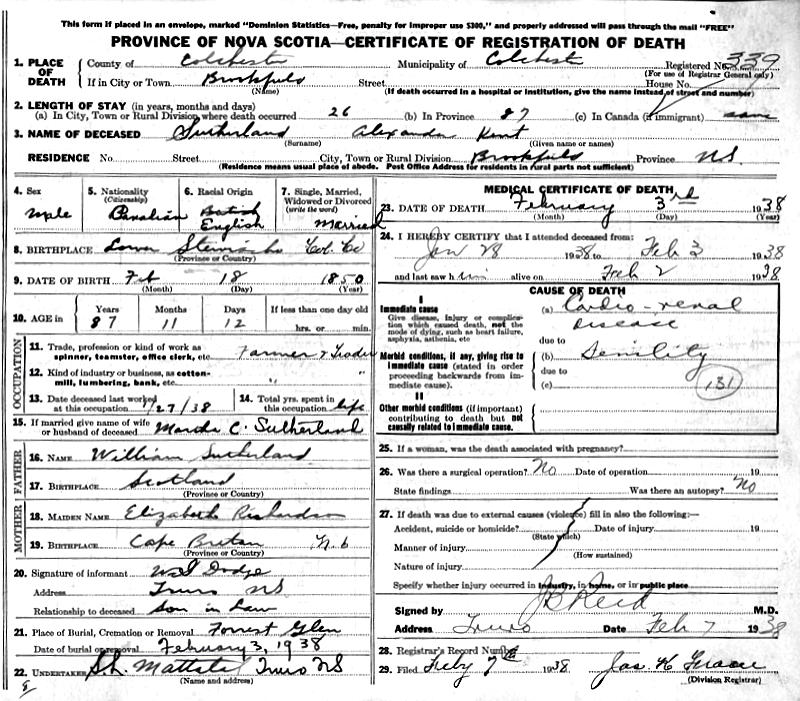 This form if placed in an envelope, marked "Dominion Statistics—Free, penalty for improper use $300," and properly addressed will pass through the mail "FREE"
PROVINCE OF NOVA SCOTIA—CERTIFICATE OF REGISTRATION OF DEATH
1. PLACE OF DEATH County of Colchester Municipality of Colchest Registered No. 339
(For use of Registrar General only)
If in City or Town Brookfield Street House No.
(Name) (If death occurred in a hospital or institution, give the name instead of street and number)
2. LENGTH OF STAY (in years, months and days)
(a) In City, Town or Rural Division where death occurred 26 (b) In Province 87 (c) In Canada (if immigrant) same
3. NAME OF DECEASED Sutherland Alexander Kent
(Surname) (Given name or names)
RESIDENCE No. Street City, Town or Rural Division Brookfield Province NS
(Residence means usual place of abode. Post Office Address for residents in rural parts not sufficient)
4. Sex Male
5. Nationality (Citizenship) Canadian
6. Racial Origin British English
7. Single, Married, Widowed or Divorced (write the word) Married
8. BIRTHPLACE Lower Stewiacke Col. Co
(Province or Country)
9. DATE OF BIRTH Feb 18 1850
(Month) (Day) (Year)
10. AGE in Years Months Days If less than one day old
87 11 12 hrs. or min.
OCCUPATION
11. Trade, profession or kind of work as spinner, teamster, office clerk, etc. Farmer & Trader
12. Kind of industry or business, as cotton-mill, lumbering, bank, etc. " "
13. Date deceased last worked at this occupation 1/27/38
14. Total yrs. spent in this occupation life
15. If married give name of wife or husband of deceased C. Sutherland
FATHER
16. NAME William Sutherland
17. BIRTHPLACE Scotland
(Province or Country)
MOTHER
18. MAIDEN NAME Elizabeth Richardson
19. BIRTHPLACE Cape Breton
(Province or Country)
20. Signature of informant Dodge
Address Truro NS
Relationship to deceased Son in Law
21. Place of Burial, Cremation or Removal Forrest Glen
Date of burial or removal February 3, 1938
22. UNDERTAKER Truro NS
(Name and address)
MEDICAL CERTIFICATE OF DEATH
23. DATE OF DEATH February 3rd 1938
(Month) (Day) (Year)
24. I HEREBY CERTIFY that I attended deceased from:
Jan 28 1938 to Feb 3 1938
and last saw him alive on Feb 2 1938
CAUSE OF DEATH
I
Immediate cause
Give disease, injury or complication which caused death, not the mode of dying, such as heart failure, asphyxia, asthenia, etc
(a) Cardio-renal disease
due to
Morbid conditions, if any, giving rise to immediate cause (stated in order proceeding backwards from immediate cause).
(b) Senility
due to
(c) 131
II
Other morbid conditions (if important) contributing to death but not causally related to immediate cause.
25. If a woman, was the death associated with pregnancy?
26. Was there a surgical operation? No Date of operation 19
State findings Was there an autopsy? No
27. If death was due to external causes (violence) fill in also the following:—
Accident, suicide or homicide? Date of injury 19
(State which)
Manner of injury
(How sustained)
Nature of injury
Specify whether injury occurred in industry, in home, or in public place
Signed by J B Reid M.D.
Address Truro Date Feb 7 1938
28. Registrar's Record Number
29. Filed Feby 7th 1938 Jas. K
(Division Registrar)